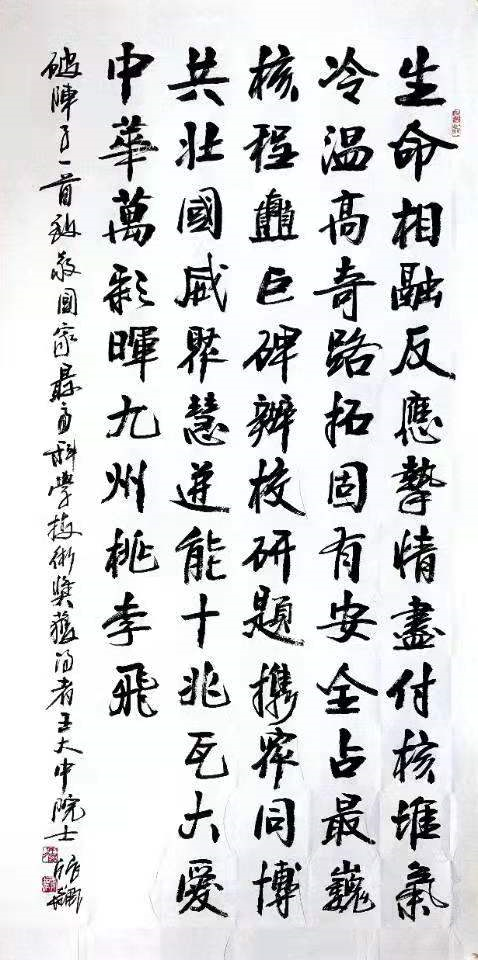 生命相融反應摯情盡付核堆氣
冷温高奇路拓固有安全占最巍
核程矗巨碑辦校研題攜同博
共壯國威聚慧迸能十兆瓦大愛
中華萬彩暉九州桃李飛
破陣子一首致敬国家最高科學技術獎獲得者王大中院士